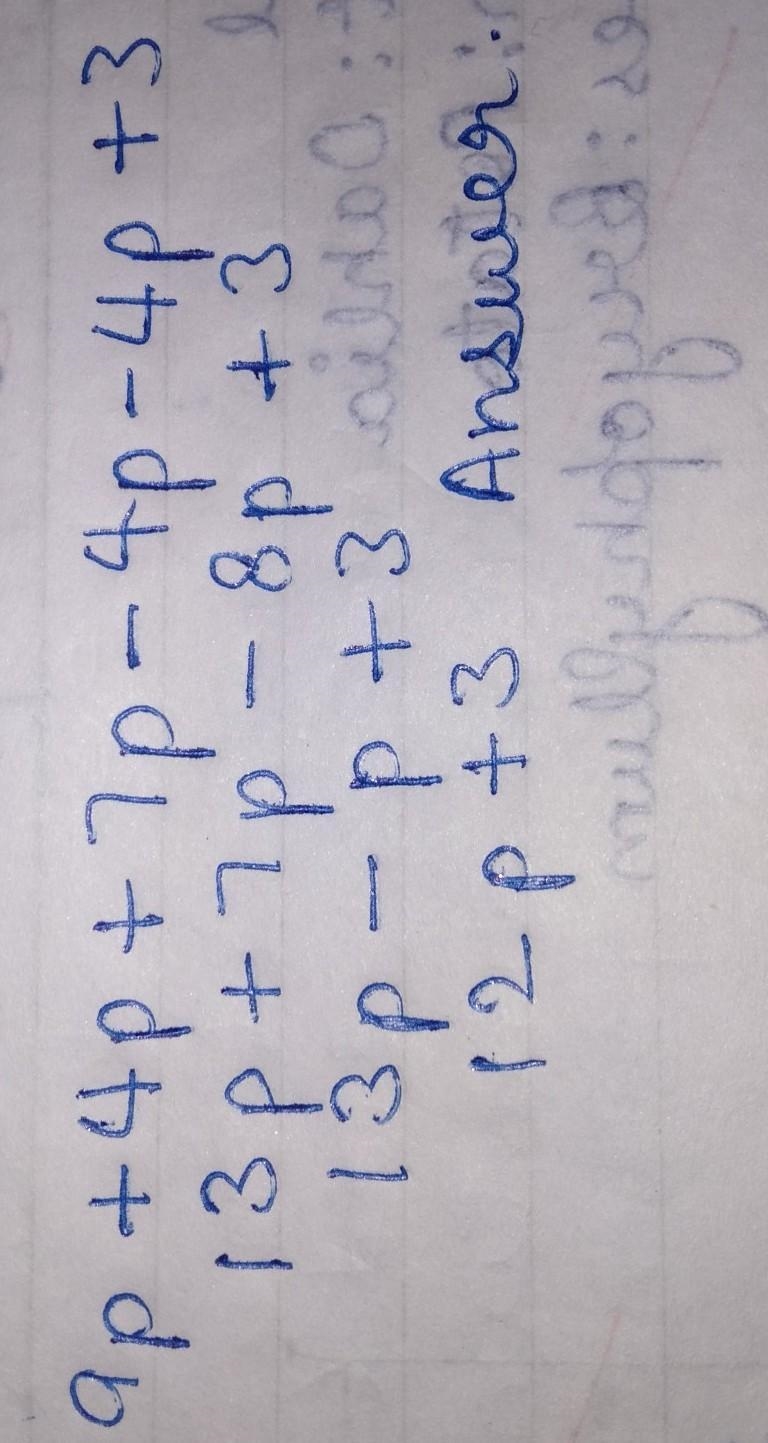 9p + 4p + 7p - 4p - 4p + 3
13p + 7p - 8p + 3
13p - p + 3
12p + 3 Answer.